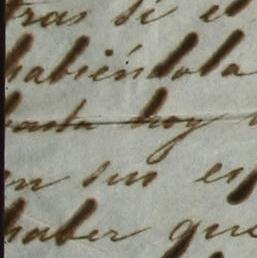 tras si el
habiéndola
hasta hoy
en sus es
haber que